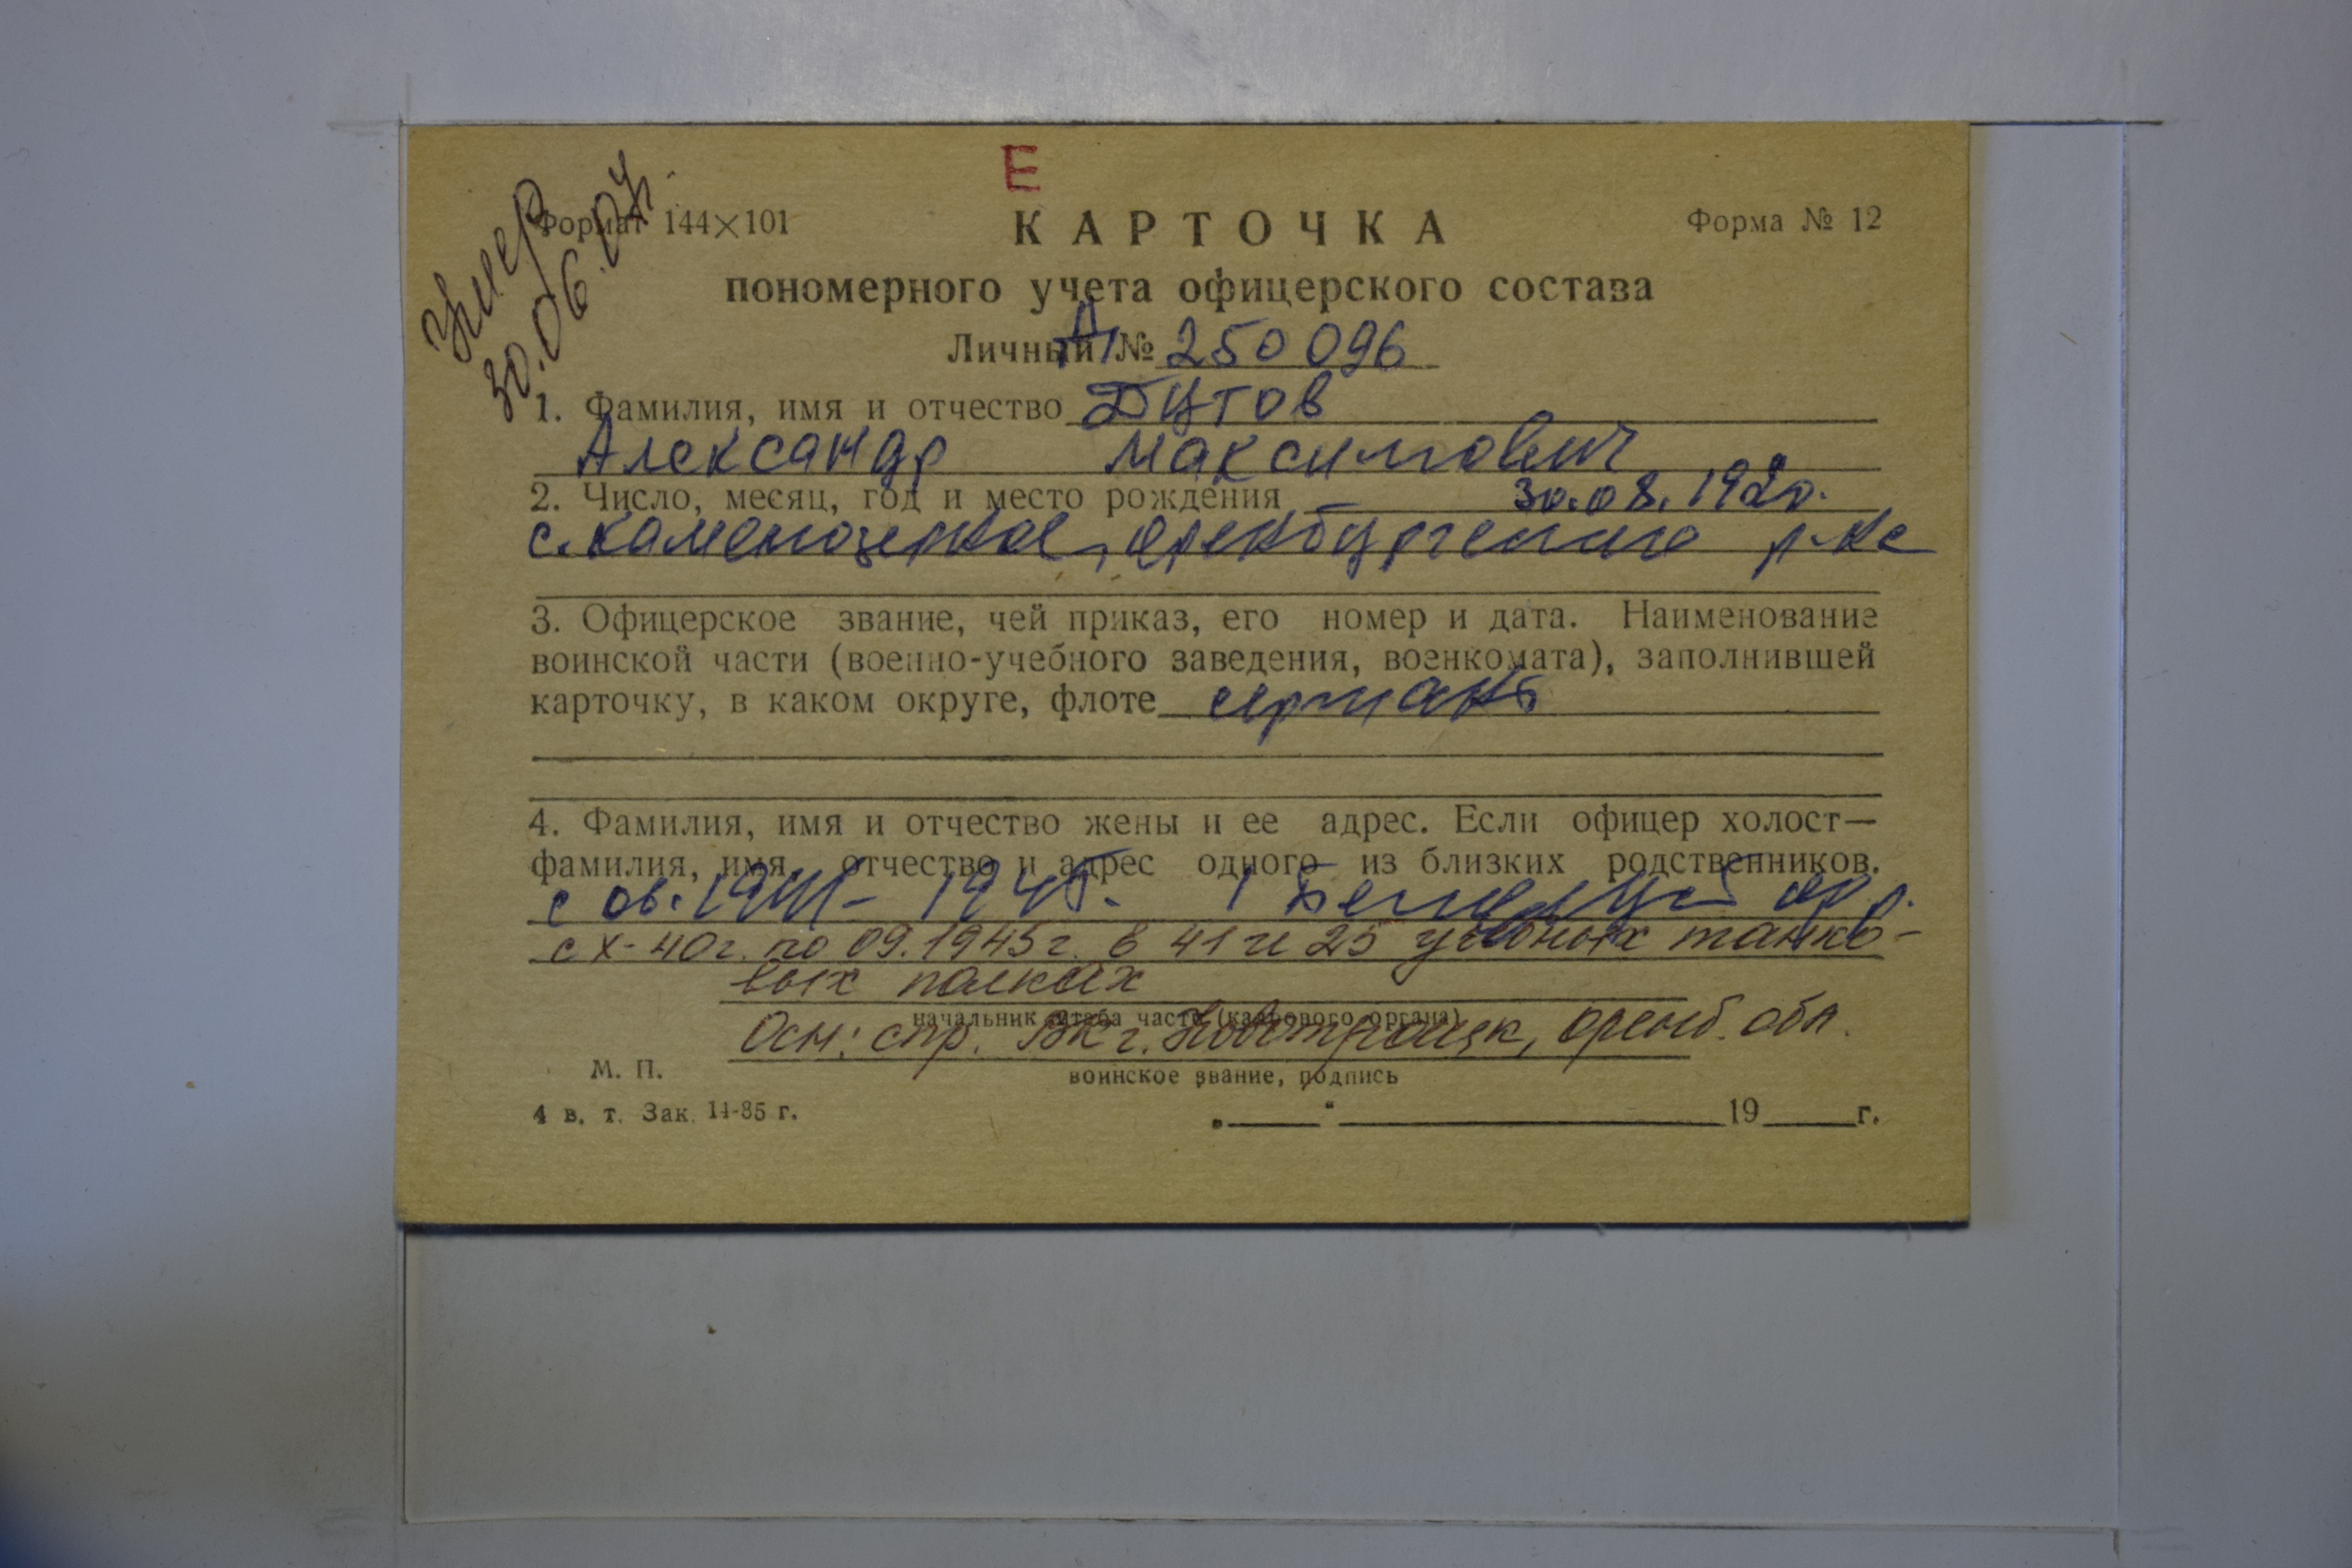 Е
умер
30.06.04.
Формат 144×101
КАРТОЧКА
Форма № 12
пономерного учета офицерского состава
Личный № А 250096
1. Фамилия, имя и отчество Дутов
Александр Максимович
2. Число, месяц, год и место рождения 30.08.1920.
с. Каменозерное, Оренбургского р-на
3. Офицерское звание, чей приказ, его номер и дата. Наименование
воинской части (военно-учебного заведения, военкомата), заполнившей
карточку, в каком округе, флоте сержант
4. Фамилия, имя и отчество жены и ее адрес. Если офицер холост—
фамилия, имя, отчество и адрес одного из близких родственников.
с 06.1941- 1945. 1
с X-40г. по 09.1945г. в 41 и 25 учебных танко-
вых полках
начальник штаба части (кадрового органа)
Осн: спр. ВК г. Новотроицк, Оренб. обл.
М. П.
воинское звание, подпись
4 в. т. Зак. 14-85 г.
„ “ 19 г.